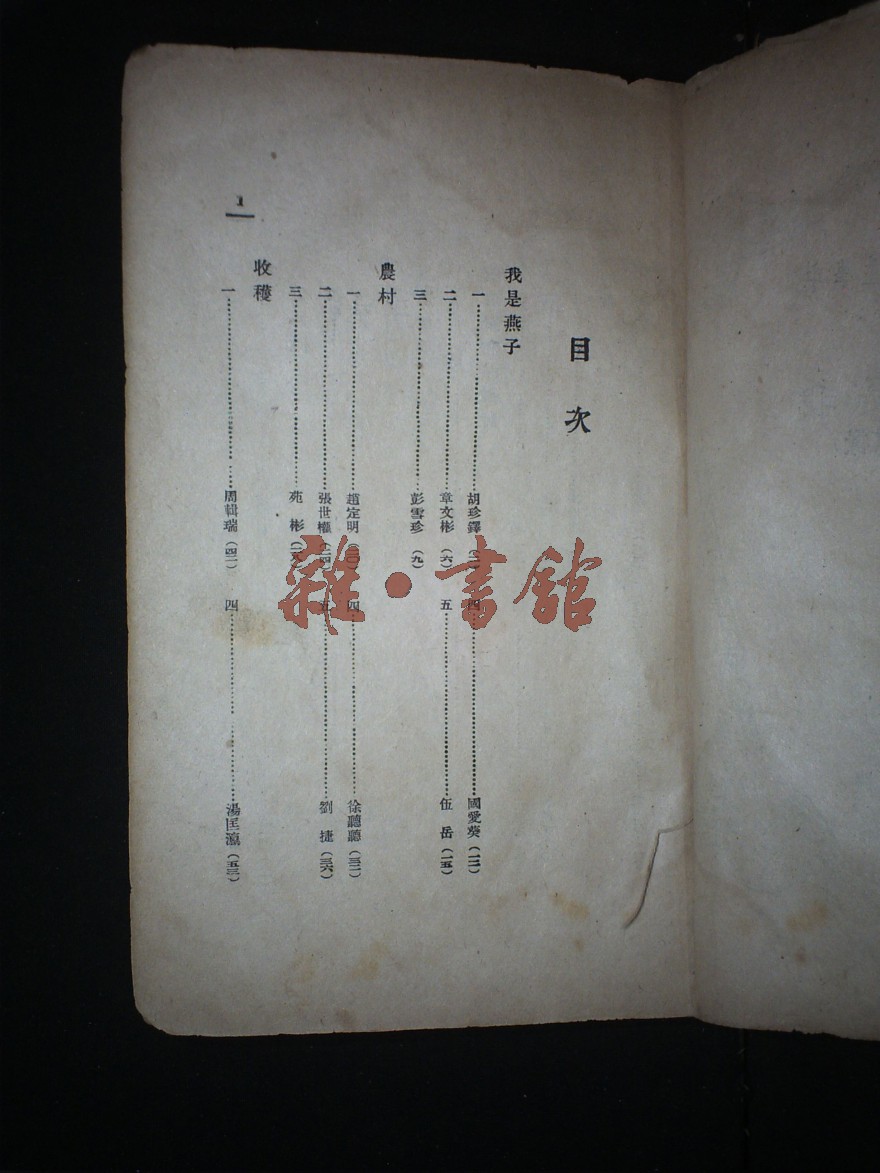 目次
我是燕子
一………胡珍鐸 四………國愛葵（一二）
二………章文彬（六） 五………伍岳（一五）
三………彭雪珍（九）
農村
一………趙定明 四………徐聽聽（三二）
二………張世權（二四） 五………劉捷（三六）
三………苑彬
收穫
一………周輯瑞（四二） 四………湯匡瀛（五三）
1
雜·書舘